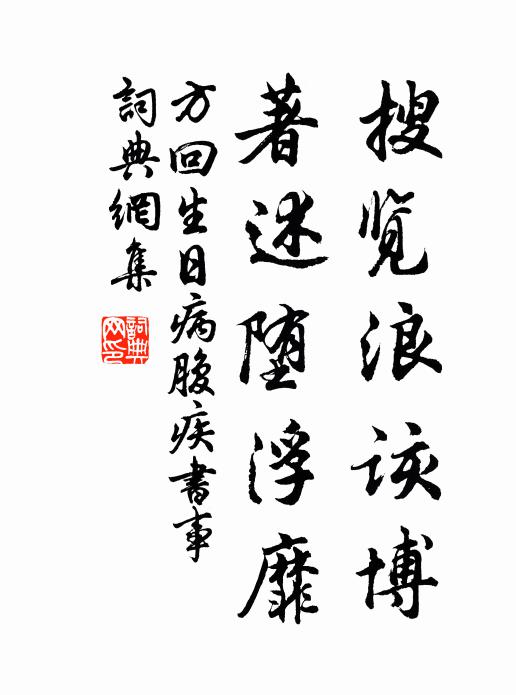 搜览浪该博
著述堕浮靡
方回生日病腹疾書事
詞典網集
詞典网印